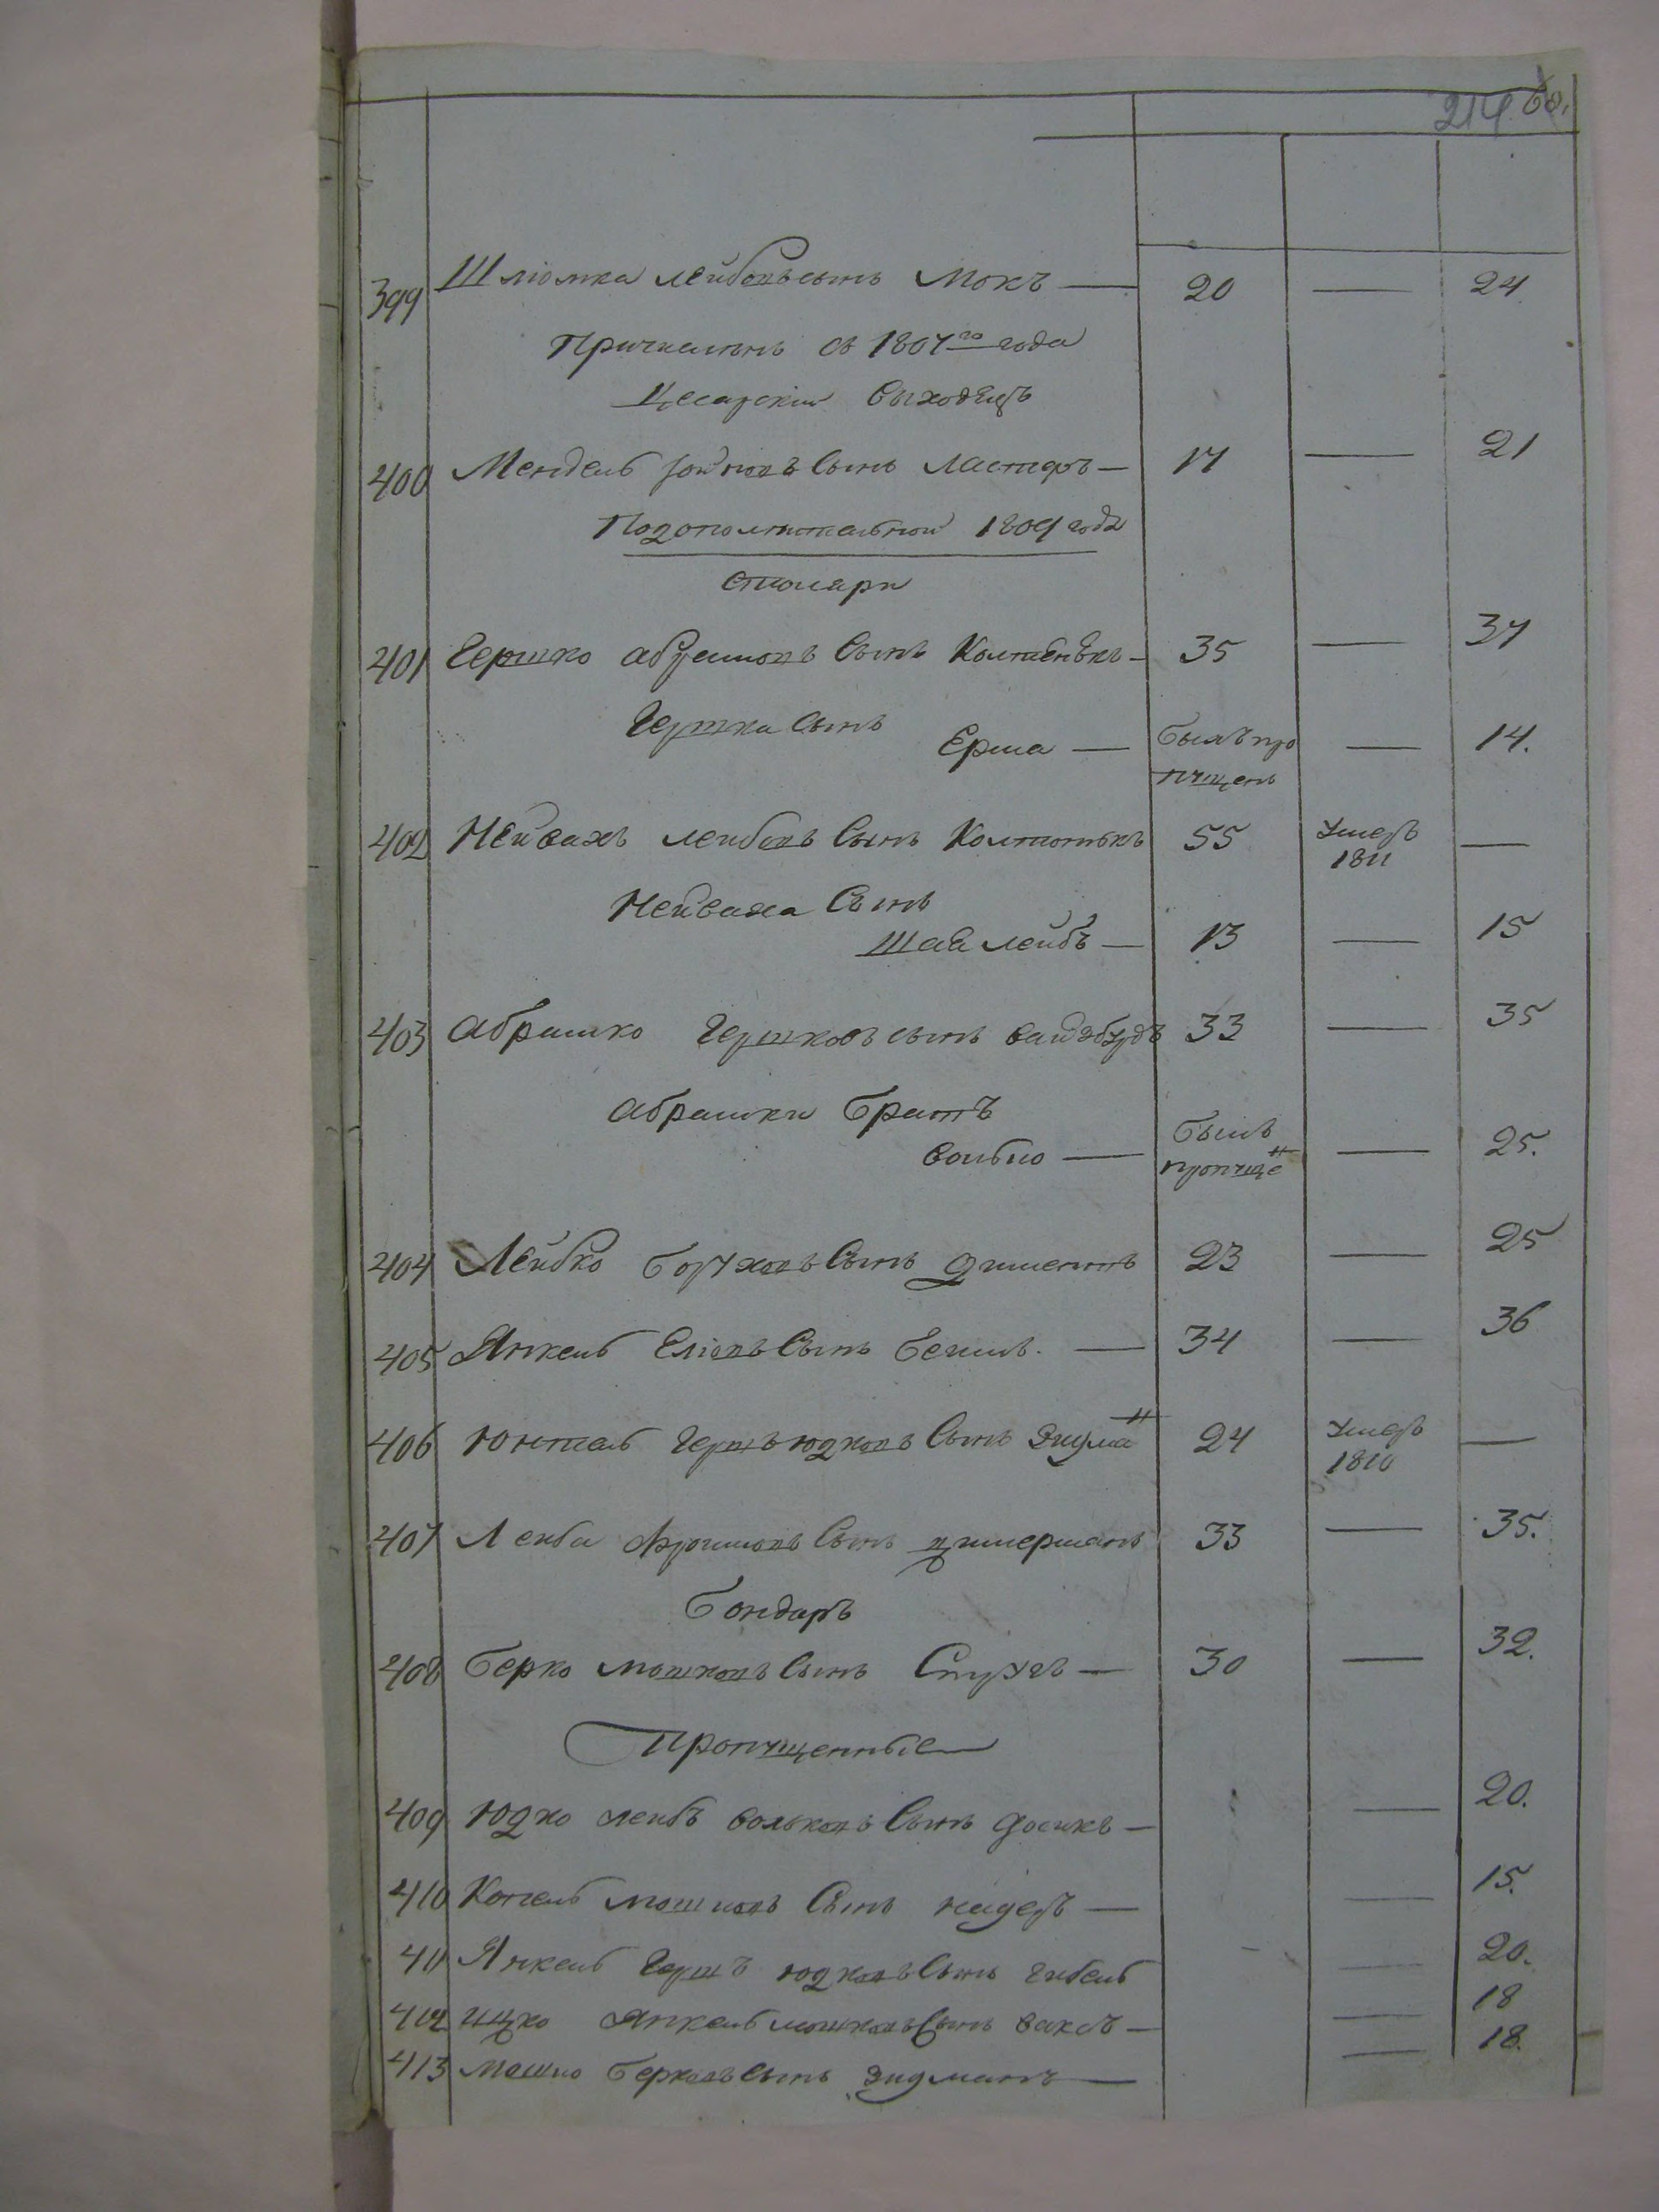 214
399 Шліомка лейбовъ сынъ Мокъ — 20 — 24
Причисленъ съ 1807го года
Цесарскій выходецъ
400 Мендель сынъ — 17 — 21
Подополнительной 1809 года
Столяри
401 Гершко абрамовъ Сынъ — 35 — 37
Гершка Сынъ
Ерма — былъ пропущенъ — 14.
402 Нейвахъ лейбовъ Сынъ 55 Умеръ 1811 —
Нейваха Сынъ
Шаа лейбъ — 13 — 15
403 абрашко Гершковъ сынъ 33 — 35
абрашки братъ
волько — былъ пропуще н — 25.
404 Лейбко боруховъ Сынъ 23 — 25
405 Янкель Еліовъ Сынъ — 34 — 36
406 Юнтель Гершъ юдковъ Сынъ 24 Умеръ 1810 —
407 Лейба Сынъ цимерманъ 33 — 35.
бондаръ
408 берко мошковъ Сынъ — 30 — 32.
Пропущенные
409 Юдко лейбъ вольковъ Сынъ — — 20.
410 Копель мошковъ Сынъ — — 15.
411 Янкель Гершъ юдковъ Сынъ — 20.
412 ицко Янкель мошковъ Сынъ ваксъ — — 18
413 Мошко берковъ сынъ зидманъ — — 18.